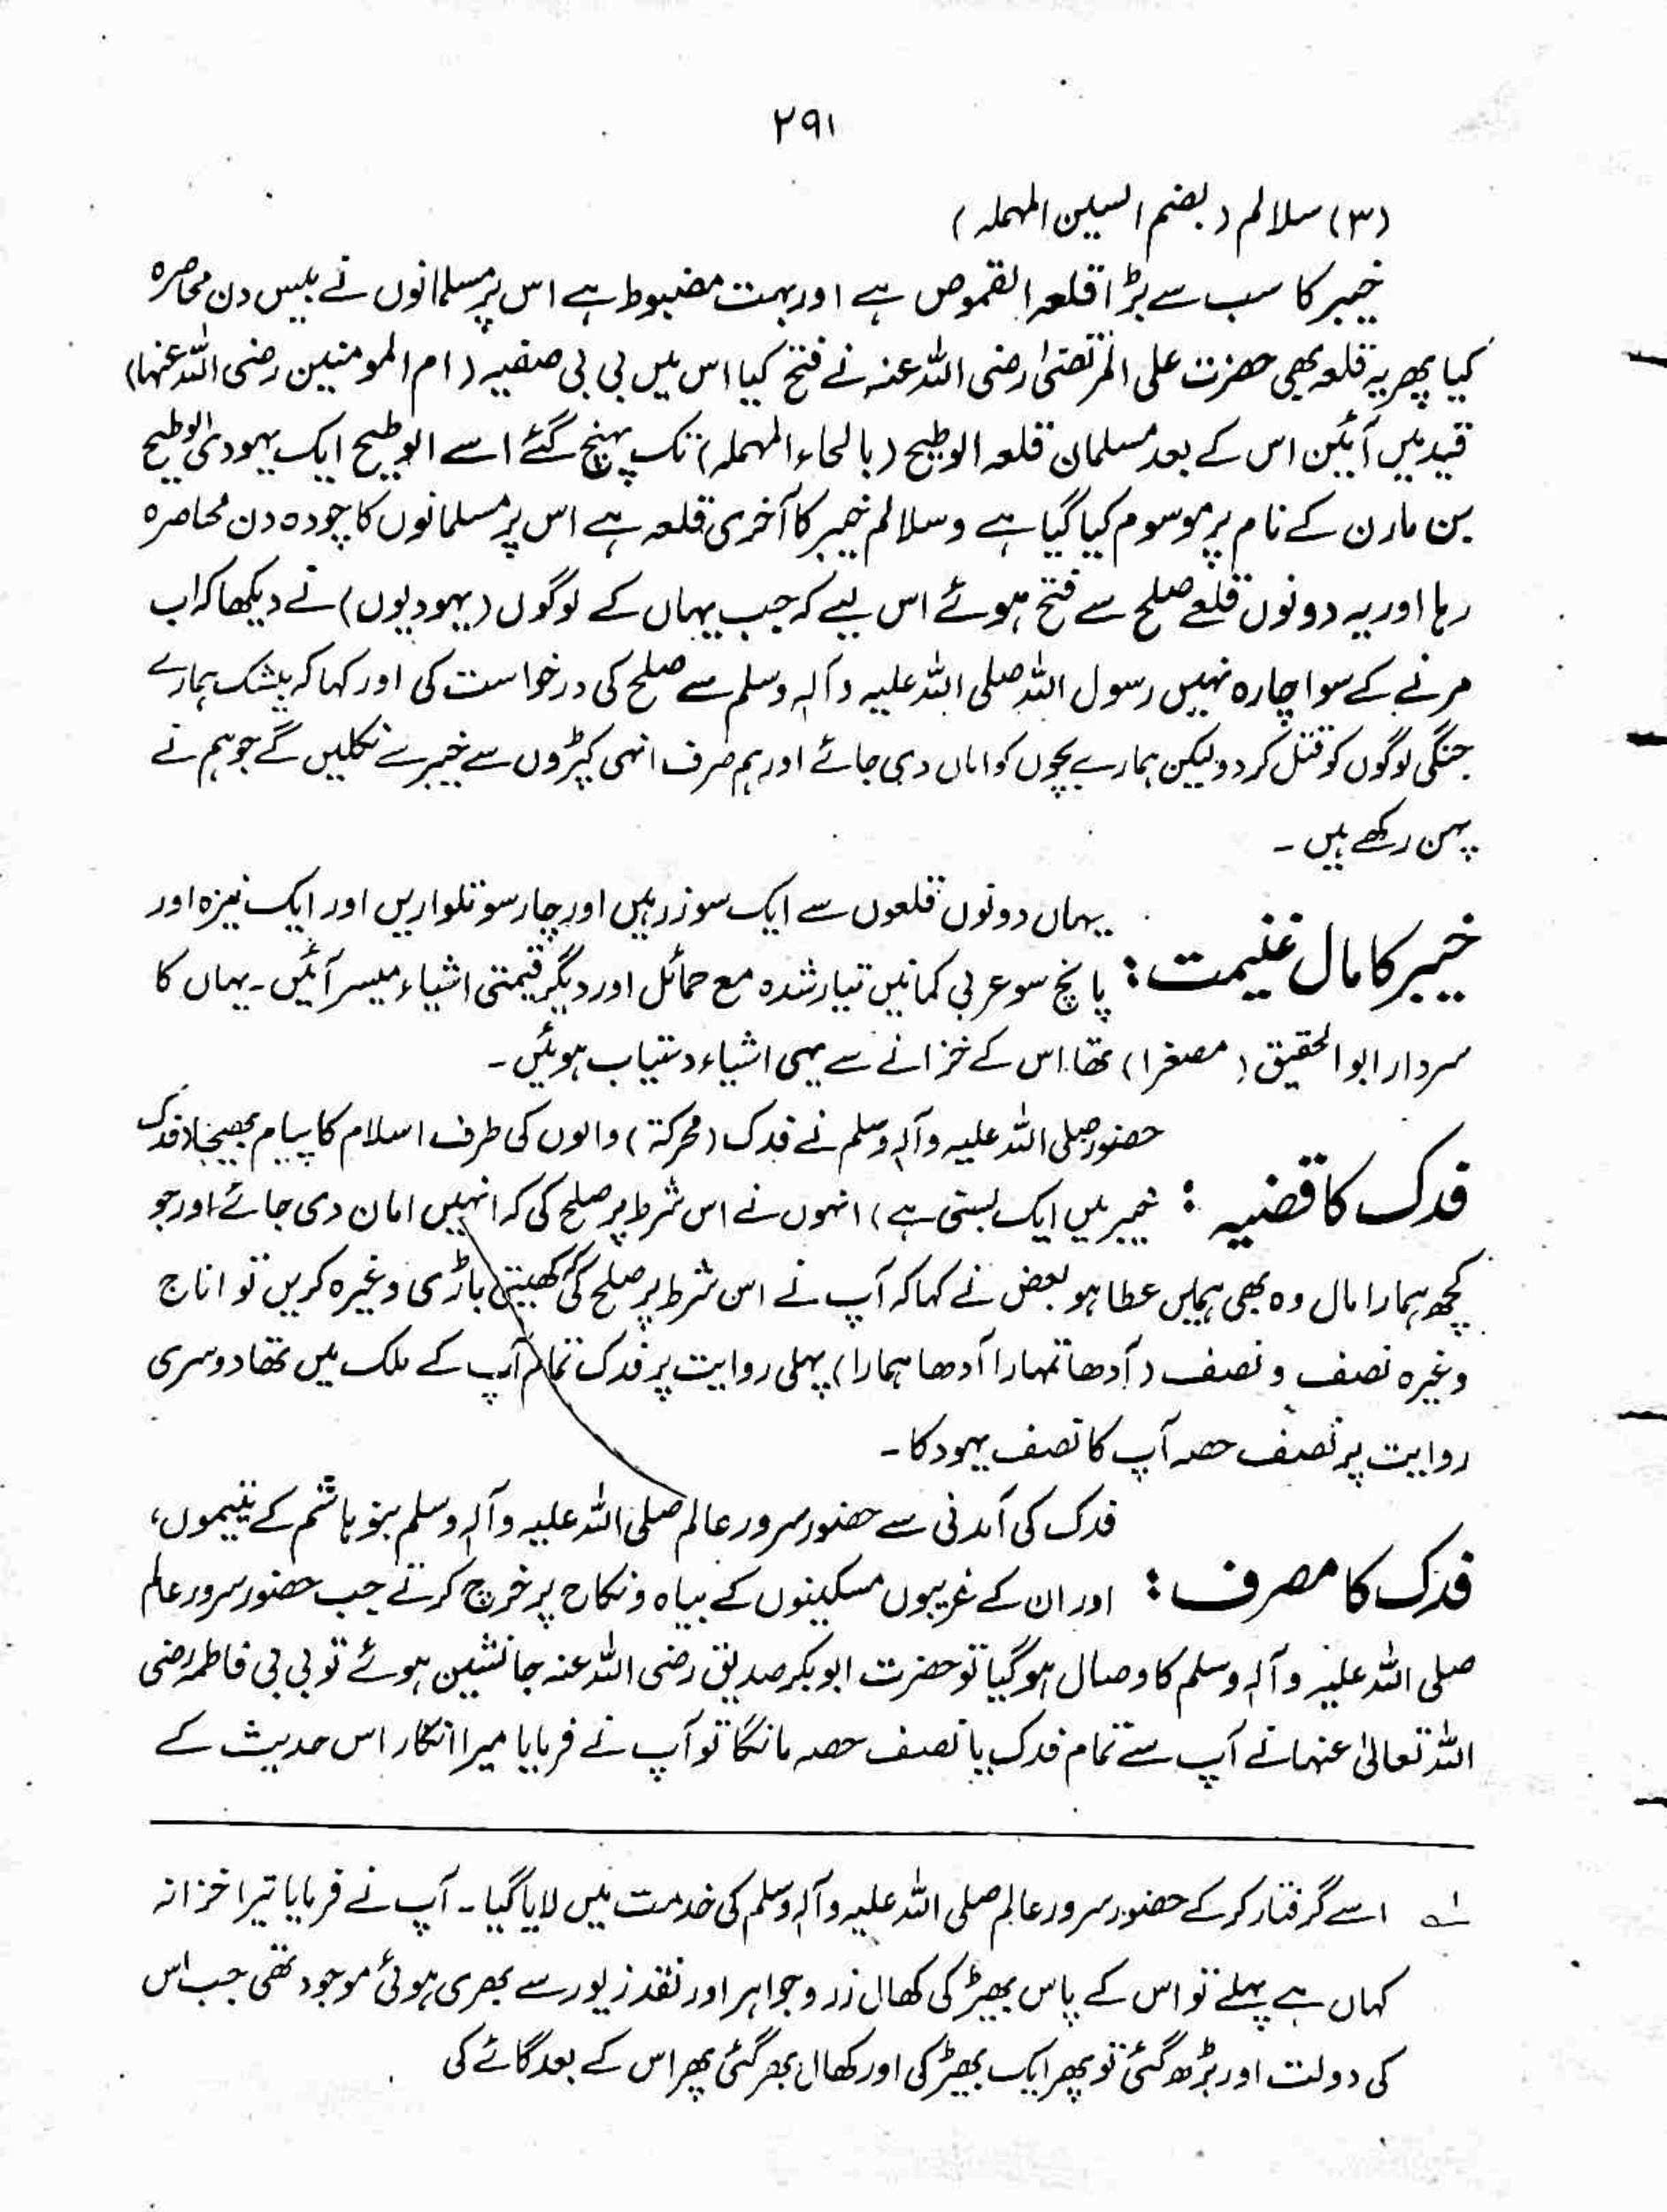 ۲۹۱
(۳) سلالم (بضم السین المہملہ)
خیبر کا سب سے بڑا قلعہ القموص ہے اور بہت مضبوط ہے اس پر مسلمانوں نے بیس دن محاصرہ
کیا پھر یہ قلعہ بھی حضرت علی المرتضیٰ رضی اللہ عنہ نے فتح کیا اس میں بی بی صفیہ (ام المومنین رضی اللہ عنہا)
قید میں آئیں اس کے بعد مسلمان قلعہ الوطیح (بالحاء المہملہ) تک پہنچ گئے اسے الوطیح ایک یہودی الوطیح
بن مازن کے نام پر موسوم کیا گیا ہے و سلالم خیبر کا آخری قلعہ ہے اس پر مسلمانوں کا چودہ دن محاصرہ
رہا اور یہ دونوں قلعے صلح سے فتح ہوئے اس لیے کہ جب یہاں کے لوگوں (یہودیوں) نے دیکھا کہ اب
مرنے کے سوا چارہ نہیں رسول اللہ صلی اللہ علیہ وآلہٖ وسلم سے صلح کی درخواست کی اور کہا کہ بیشک ہمارے
جنگی لوگوں کو قتل کر دو لیکن ہمارے بچوں کو اماں دی جائے اور ہم صرف انہی کپڑوں سے خیبر سے نکلیں گے جو ہم نے
پہن رکھے ہیں ۔
خیبر کا مال غنیمت : یہاں دونوں قلعوں سے ایک سو زرہیں اور چار سو تلواریں اور ایک نیزہ اور
پانچ سو عربی کمانیں تیار شدہ مع حمائل اور دیگر قیمتی اشیاء میسر آئیں ۔ یہاں کا
سردار ابوالحقیق (مصغرا) تھا اس کے خزانے سے یہی اشیاء دستیاب ہوئیں ۔
فدک کا قضیہ : حضور صلی اللہ علیہ وآلہٖ وسلم نے فدک (محرکۃ) والوں کی طرف اسلام کا پیام بھیجا (فدک
خیبر میں ایک بستی ہے) انہوں نے اس شرط پر صلح کی کہ انہیں امان دی جائے اور جو
کچھ ہمارا مال وہ بھی ہمیں عطا ہو بعض نے کہا کہ آپ نے اس شرط پر صلح کی کہ کھیتی باڑی وغیرہ کریں تو اناج
وغیرہ نصف و نصف (آدھا تمہارا آدھا ہمارا) پہلی روایت پر فدک تمام آپ کے ملک میں تھا دوسری
روایت پر نصف حصہ آپ کا نصف یہود کا ۔
فدک کا مصرف : فدک کی آمدنی سے حضور سرور عالم صلی اللہ علیہ وآلہٖ وسلم بنو ہاشم کے یتیموں،
اور ان کے غریبوں مسکینوں کے بیاہ و نکاح پر خرچ کرتے جب حضور سرور عالم
صلی اللہ علیہ وآلہٖ وسلم کا وصال ہو گیا تو حضرت ابوبکر صدیق رضی اللہ عنہ جانشین ہوئے تو بی بی فاطمہ رضی
اللہ تعالیٰ عنہا نے آپ سے تمام فدک یا نصف حصہ مانگا تو آپ نے فرمایا میرا انکار اس حدیث کے
؎۱ اسے گرفتار کر کے حضور سرور عالم صلی اللہ علیہ وآلہٖ وسلم کی خدمت میں لایا گیا ۔ آپ نے فرمایا تیرا خزانہ
کہاں ہے پہلے تو اس کے پاس بھیڑ کی کھال زر و جواہر اور نقد زیور سے بھری ہوئی موجود تھی جب اس
کی دولت اور بڑھ گئی تو پھر ایک بھیڑ کی اور کھال بھر گئی پھر اس کے بعد گائے کی